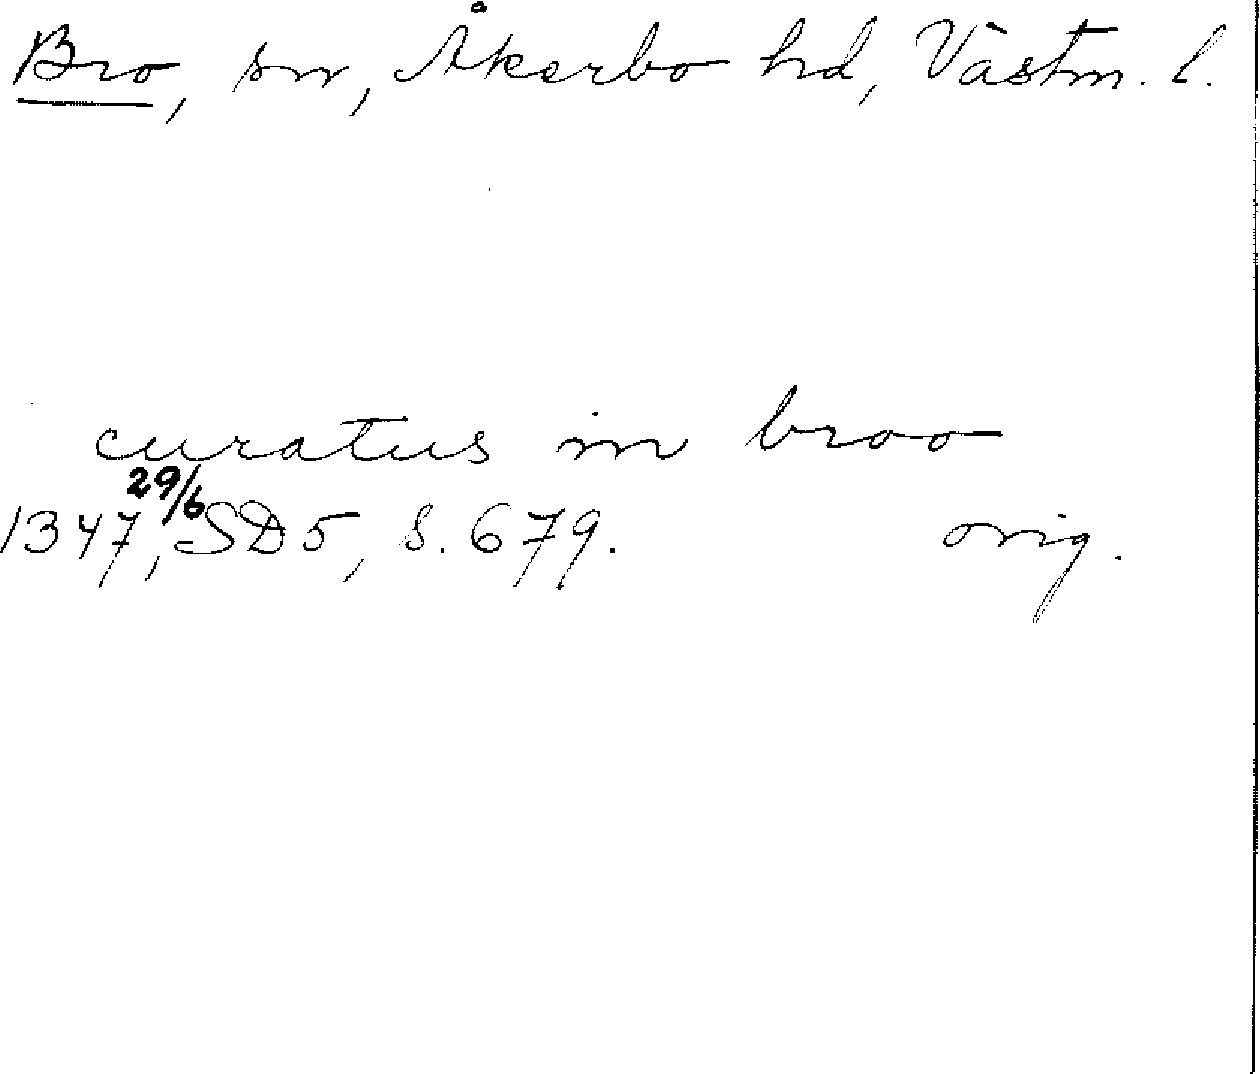 Bro, sn, Åkerbo hd, Västm. l.
curatus in broo
1347, 29/6 SD5, S. 679. orig.